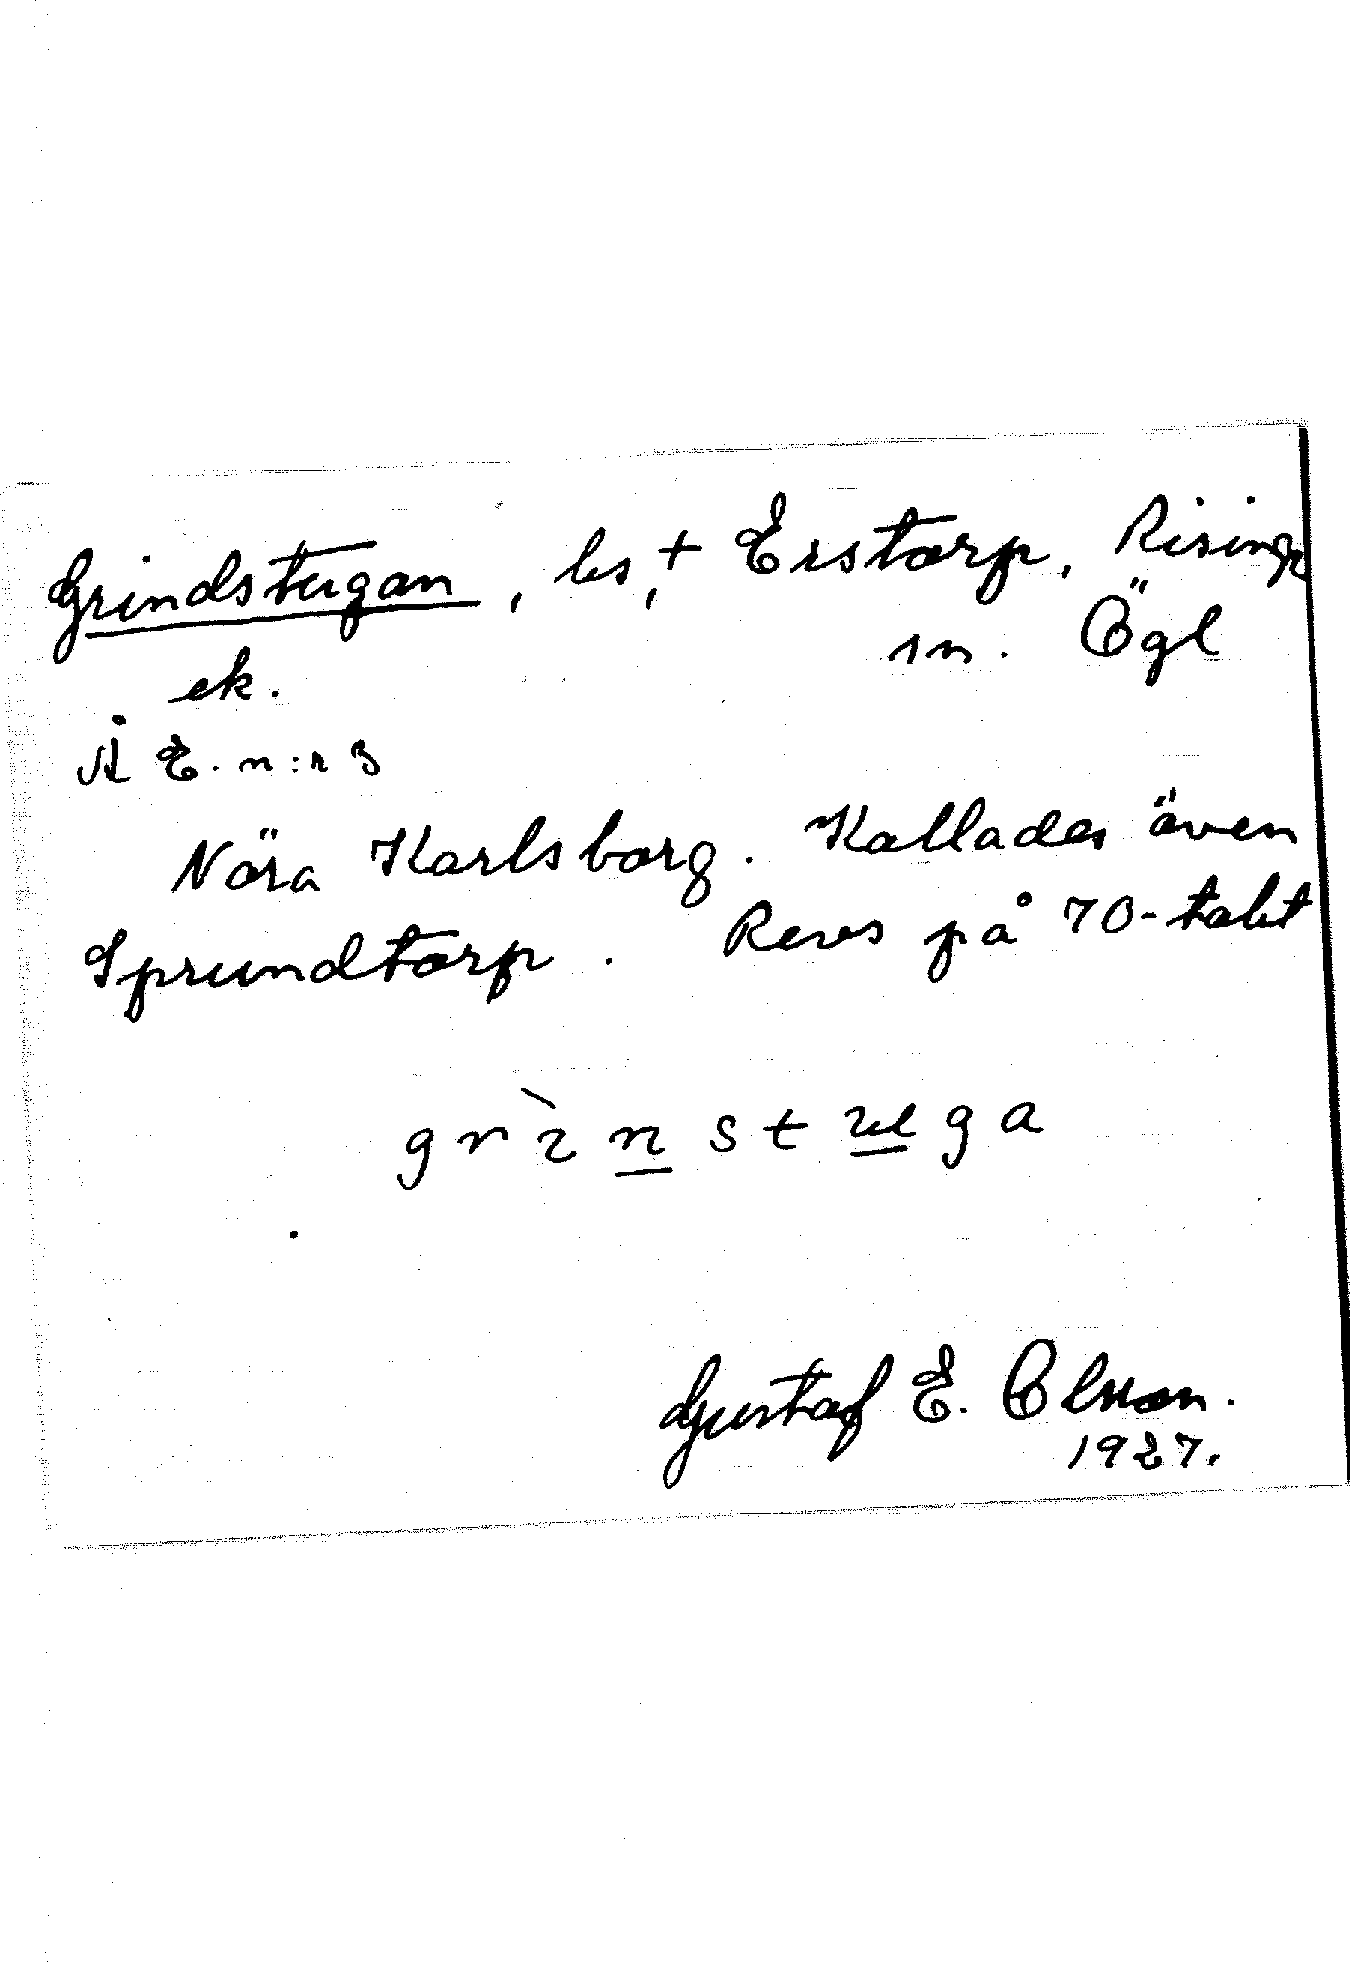 Grindstugan, ls, † Erstorp, Risinge
ek. sn. Ögl
Å E. n:r 3
Nära Karlsborg. Kallades även
Sprundtorp. Revs på 70-talet
grìnstuga
Gustaf E. Olsson.
1927.